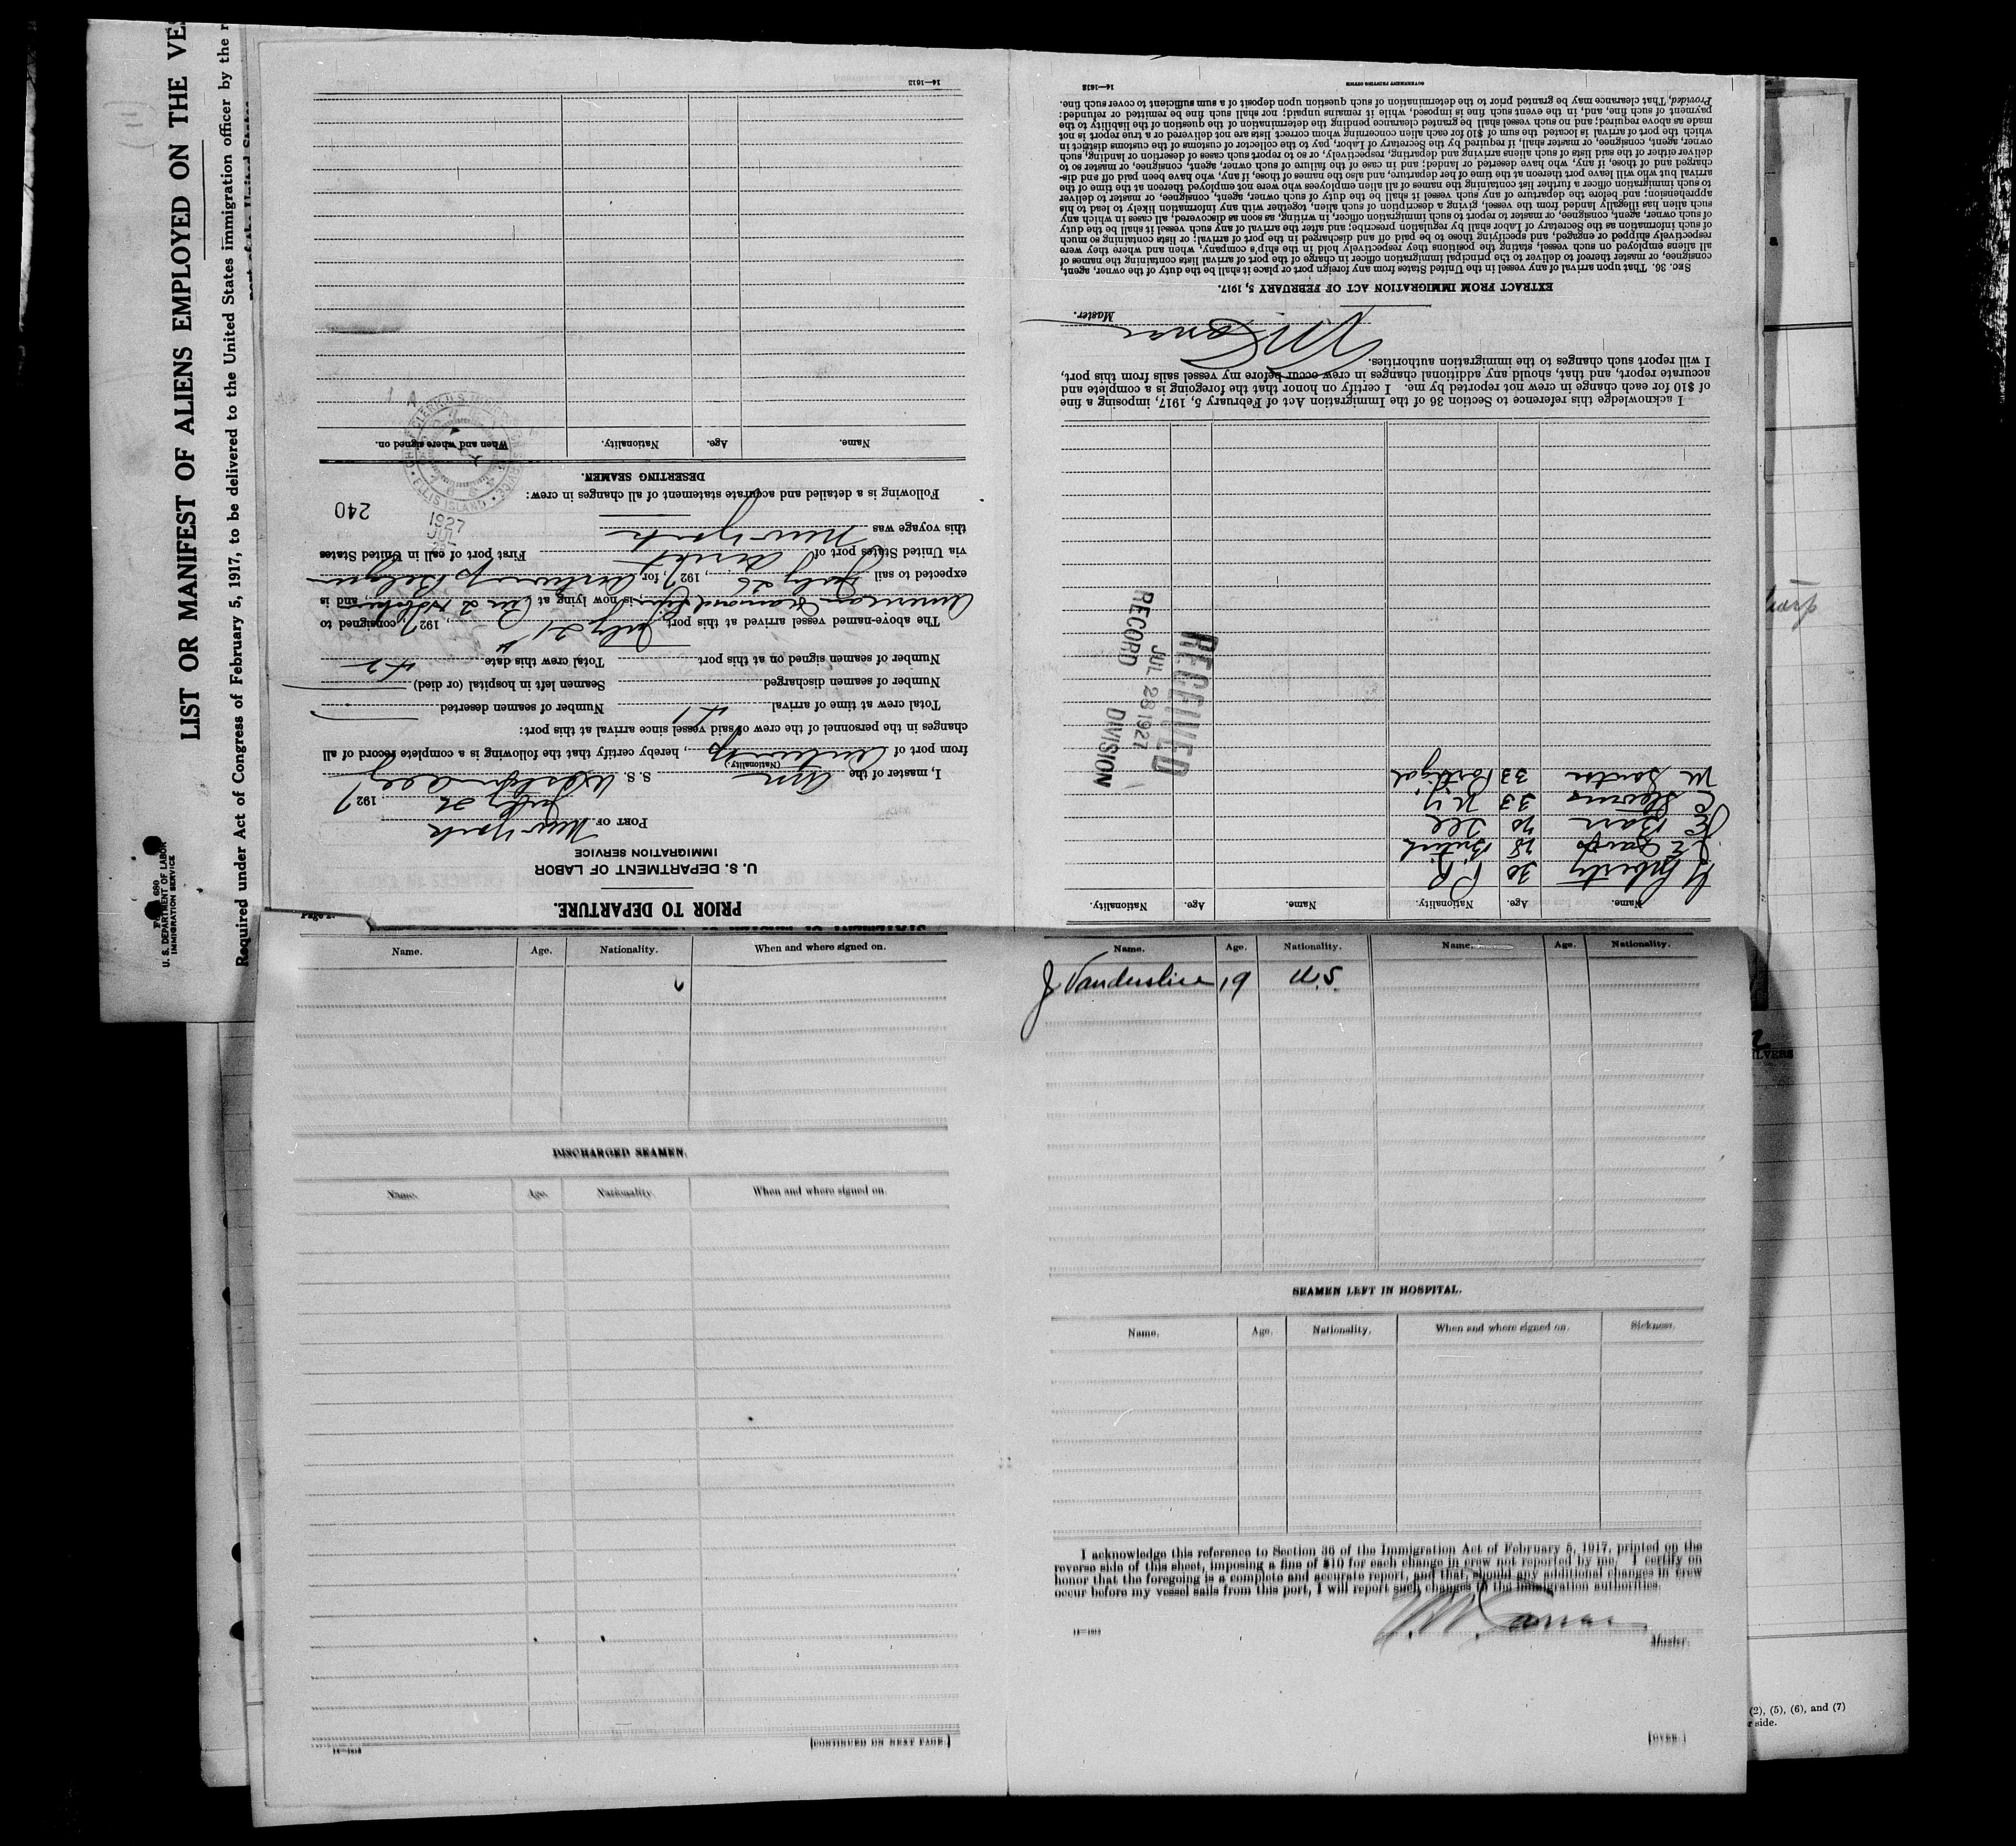 LIST OR MANIFEST OF ALIENS EMPLOYED ON THE VES
Required under Act of Congress of February 5, 1917, to be delivered to the United States immigration officer by the r
680
U. S. DEPARTMENT OF LABOR
IMMIGRATION SERVICE
PRIOR TO DEPARTURE.
U. S. DEPARTMENT OF LABOR
IMMIGRATION SERVICE
PORT OF New York
July 22, 1927
I, master of the Am S. S.
(Nationality.)
from port of Antwerp, hereby certify that the following is a complete record of all
changes in the personnel of the crew of said vessel since arrival at this port:
Total crew at time of arrival 41 Number of seamen deserted
Number of seamen discharged Seamen left in hospital (or died)
Number of seamen signed on at this port Total crew this date 42
The above-named vessel arrived at this port July 21st, 1927, consigned to
American Diamond Lines, is now lying at Pier 2 Hoboken, and is
expected to sail July 26, 1927, for Antwerp Belgium
via United States port of direct First port of call in United States
this voyage was New York
Following is a detailed and accurate statement of all changes in crew:
240
1927
JUL
ELLIS ISLAND
DESERTING SEAMEN.
Name. Age. Nationality. When and where signed on.
14—1613
Name. Age. Nationality. Name. Age. Nationality.
30 P.R.
28 British
Barr
C Stevens 33 N.Y
M Santos 33 Portugal
RECEIVED
JUL 28 1927
RECORD DIVISION
I acknowledge this reference to Section 36 of the Immigration Act of February 5, 1917, imposing a fine
of $10 for each change in crew not reported by me. I certify on honor that the foregoing is a complete and
accurate report, and that, should any additional changes in crew occur before my vessel sails from this port,
I will report such changes to the immigration authorities.
Master.
EXTRACT FROM IMMIGRATION ACT OF FEBRUARY 5, 1917.
SEC. 36. That upon arrival of any vessel in the United States from any foreign port or place it shall be the duty of the owner, agent,
consignee, or master thereof to deliver to the principal immigration officer in charge of the port of arrival lists containing the names of
all aliens employed on such vessel, stating the positions they respectively hold in the ship's company, when and where they were
respectively shipped or engaged, and specifying those to be paid off and discharged in the port of arrival; or lists containing so much
of such information as the Secretary of Labor shall by regulation prescribe; and after the arrival of any such vessel it shall be the duty
of such owner, agent, consignee, or master to report to such immigration officer, in writing, as soon as discovered, all cases in which any
such alien has illegally landed from the vessel, giving a description of such alien, together with any information likely to lead to his
apprehension; and before the departure of any such vessel it shall be the duty of such owner, agent, consignee, or master to deliver
to such immigration officer a further list containing the names of all alien employees who were not employed thereon at the time of the
arrival but who will leave port thereon at the time of her departure, and also the names of those, if any, who have been paid off and dis-
charged and of those, if any, who have deserted or landed; and in case of the failure of such owner, agent, consignee, or master so to
deliver either of the said lists of such aliens arriving and departing, respectively, or so to report such cases of desertion or landing, such
owner, agent, consignee, or master shall, if required by the Secretary of Labor, pay to the collector of customs of the customs district in
which the port of arrival is located the sum of $10 for each alien concerning whom correct lists are not delivered or a true report is not
made as above required; and no such vessel shall be granted clearance pending the determination of the question of the liability to the
payment of such fine, and, in the event such fine is imposed, while it remains unpaid; nor shall such fine be remitted or refunded:
Provided, That clearance may be granted prior to the determination of such question upon deposit of a sum sufficient to cover such fine.
14—1618
GOVERNMENT PRINTING OFFICE
Name. Age. Nationality. When and where signed on.
DISCHARGED SEAMEN.
Name. Age. Nationality. When and where signed on.
[CONTINUED ON NEXT PAGE.]
Name. Age. Nationality. Name. Age. Nationality.
J Vanderslice 19 U.S.
SEAMEN LEFT IN HOSPITAL.
Name. Age. Nationality. When and where signed on. Sickness.
I acknowledge this reference to Section 36 of the Immigration Act of February 5, 1917, printed on the
reverse side of this sheet, imposing a fine of $10 for each change in crew not reported by me. I certify on
honor that the foregoing is a complete and accurate report, and that, should any additional changes in crew
occur before my vessel sails from this port, I will report such changes to the immigration authorities.
Master.
[OVER.]
(2), (5), (6), and (7)
r side.